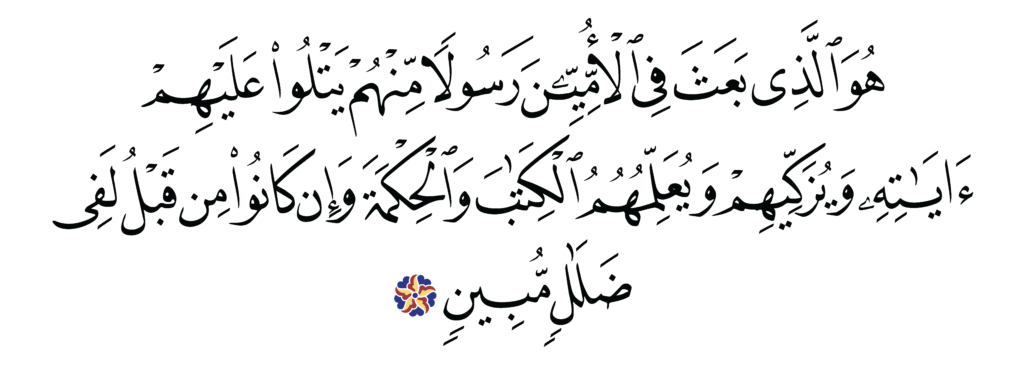 هُوَ ٱلَّذِى بَعَثَ فِى ٱلْأُمِّيِّـۧنَ رَسُولًا مِّنْهُمْ يَتْلُوا۟ عَلَيْهِمْ
ءَايَـٰتِهِۦ وَيُزَكِّيهِمْ وَيُعَلِّمُهُمُ ٱلْكِتَـٰبَ وَٱلْحِكْمَةَ وَإِن كَانُوا۟ مِن قَبْلُ لَفِى
ضَلَـٰلٍ مُّبِينٍ